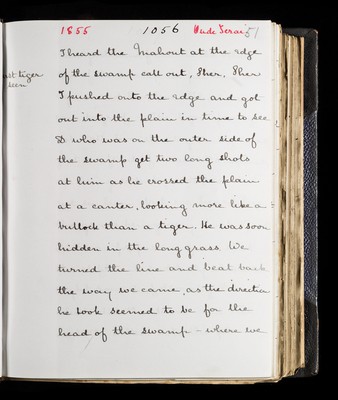 1855 1056 Terai 51
I heard the Mahout at the edge
1st tiger
seen
of the swamp call out, Sher, Sher
I pushed onto the edge and got
out into the plain in time to see
D who was on the outer side of
the swamp get two long shots
at him as he crossed the plain
at a canter, looking more like a
bullock than a tiger. He was soon
hidden in the long grass. We
turned the line and beat back
the way we came, as the direction
he took seemed to be for the
head of the swamp – where we